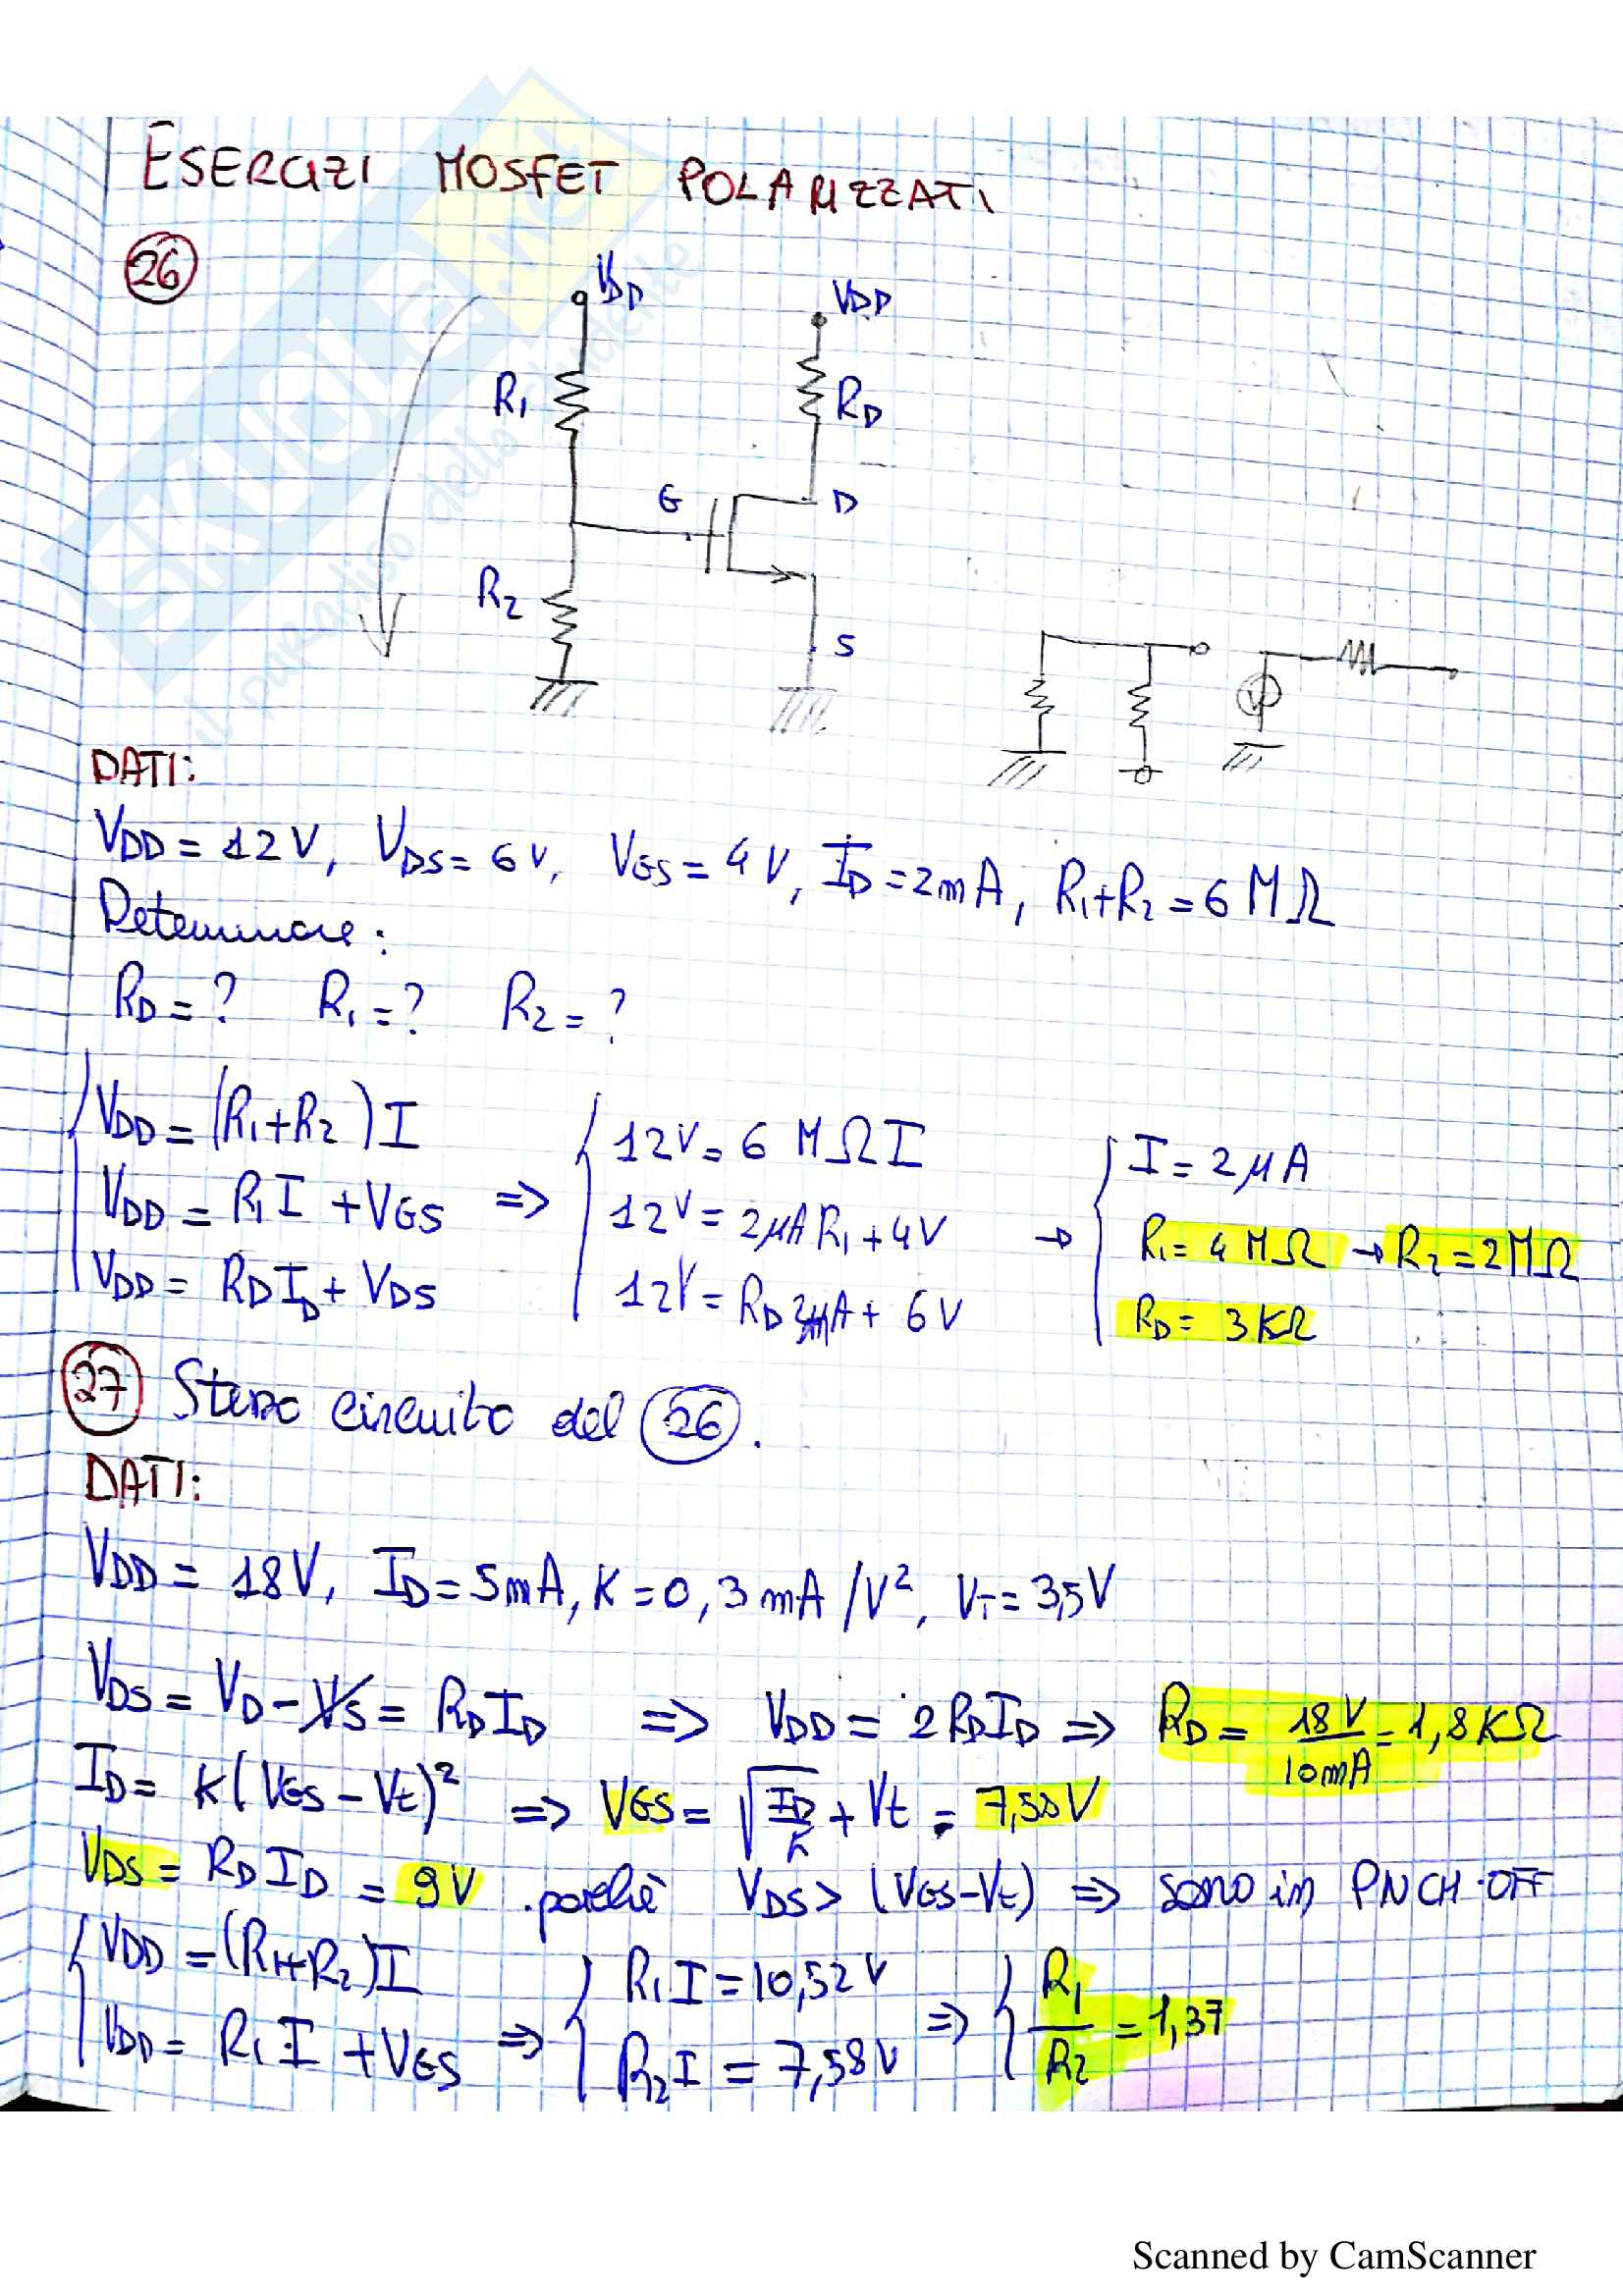 ESERCIZI MOSFET POLARIZZATI
26
VDD
VDD
R1
RD
G
D
R2
S
V
SKUOLA.net
il paradiso dello studente
DATI:
VDD = 12V, VDS = 6V, VGS = 4V, ID = 2mA, R1+R2 = 6 MΩ
Determinare:
RD = ? R1 = ? R2 = ?
VDD = (R1+R2)I
VDD = R1I + VGS
VDD = RDID + VDS
=>
12V = 6 MΩ I
12V = 2μA R1 + 4V
12V = RD 2mA + 6V
→
I = 2μA
R1 = 4 MΩ → R2 = 2MΩ
RD = 3KΩ
27 Stesso circuito del 26.
DATI:
VDD = 18V, ID = 5mA, K = 0,3mA/V², VT = 3,5V
VDS = VD - VS = RDID => VDD = 2RDID => RD = 18V/10mA = 1,8KΩ
ID = K(VGS - Vt)² => VGS = √(ID/K) + Vt = 7,58V
VDS = RDID = 9V poichè VDS > (VGS-Vt) => sono in PNCH-OFF
VDD = (R1+R2)I
VDD = R1I + VGS
=>
R1I = 10,52V
R2I = 7,58V
=>
R1/R2 = 1,37
Scanned by CamScanner